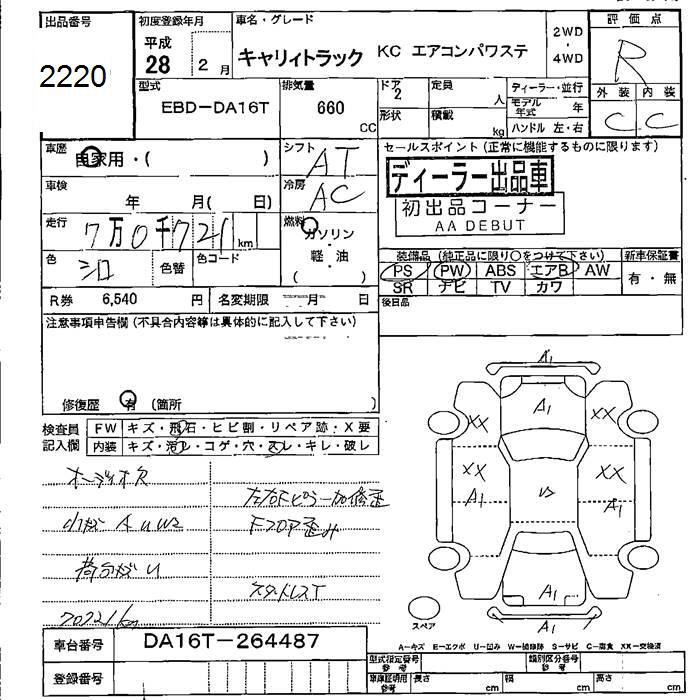 出品番号
2220
初度登録年月
平成
28 2 月
車名・グレード
キャリィトラック KC エアコンパワステ
2WD
・
4WD
評価点
R
外装 内装
C C
型式
EBD-DA16T
排気量
660
CC
ドア
2
形状
定員
人
積載
kg
ディーラー・並行
モデル年式 年
ハンドル 左・右
車歴
自家用・( )
シフト
AT
車検
年 月( 日)
冷房
AC
走行
7万0千721 km
燃料
ガソリン
・
軽・油
( )
色
シロ
色替
色コード
R券 6,540 円
名変期限 月 日
セールスポイント (正常に機能するものに限ります)
ディーラー出品車
初出品コーナー
AA DEBUT
装備品 (純正品に限り○をつけて下さい)
新車保証書
PS PW ABS エアB AW
SR ナビ TV カワ
有・無
後日品
注意事項申告欄 (不具合内容等は具体的に記入して下さい)
修復歴 有 (箇所 )
検査員
記入欄
FW キズ・飛石・ヒビ割・リペア跡・X要
内装 キズ・汚レ・コゲ・穴・スレ・キレ・破レ
オーディオ欠
左右Fピラー加修歪
小キズ A U W2
Fフロア歪み
荷台サビU
スタッドレスT
70721km
A1
A1
XX XX
XX XX
A1 A1
A1
A1
スペア
A-キズ E-エクボ U-凹み W-補修跡 S-サビ C-腐食 XX-交換済
車台番号 DA16T-264487
登録番号
型式指定番号
参考
類別区分番号
参考
車庫証明用
参考
長さ cm
幅 cm
高さ cm